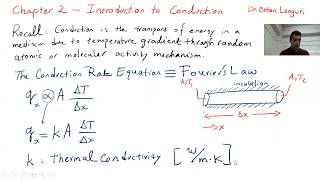 Chapter 2 - Introduction to Conduction
Dr. Ehsan Languri
Recall: Conduction is the transport of energy in a
medium due to temperature gradient through random
atomic or molecular activity mechanism.
The Conduction Rate Equation ≡ Fourier's Law
qx ∝ A ΔT/Δx
insulation
A, T1
A, T2
Δx
x
qx = k A ΔT/Δx
k: thermal Conductivity [W/m·K]